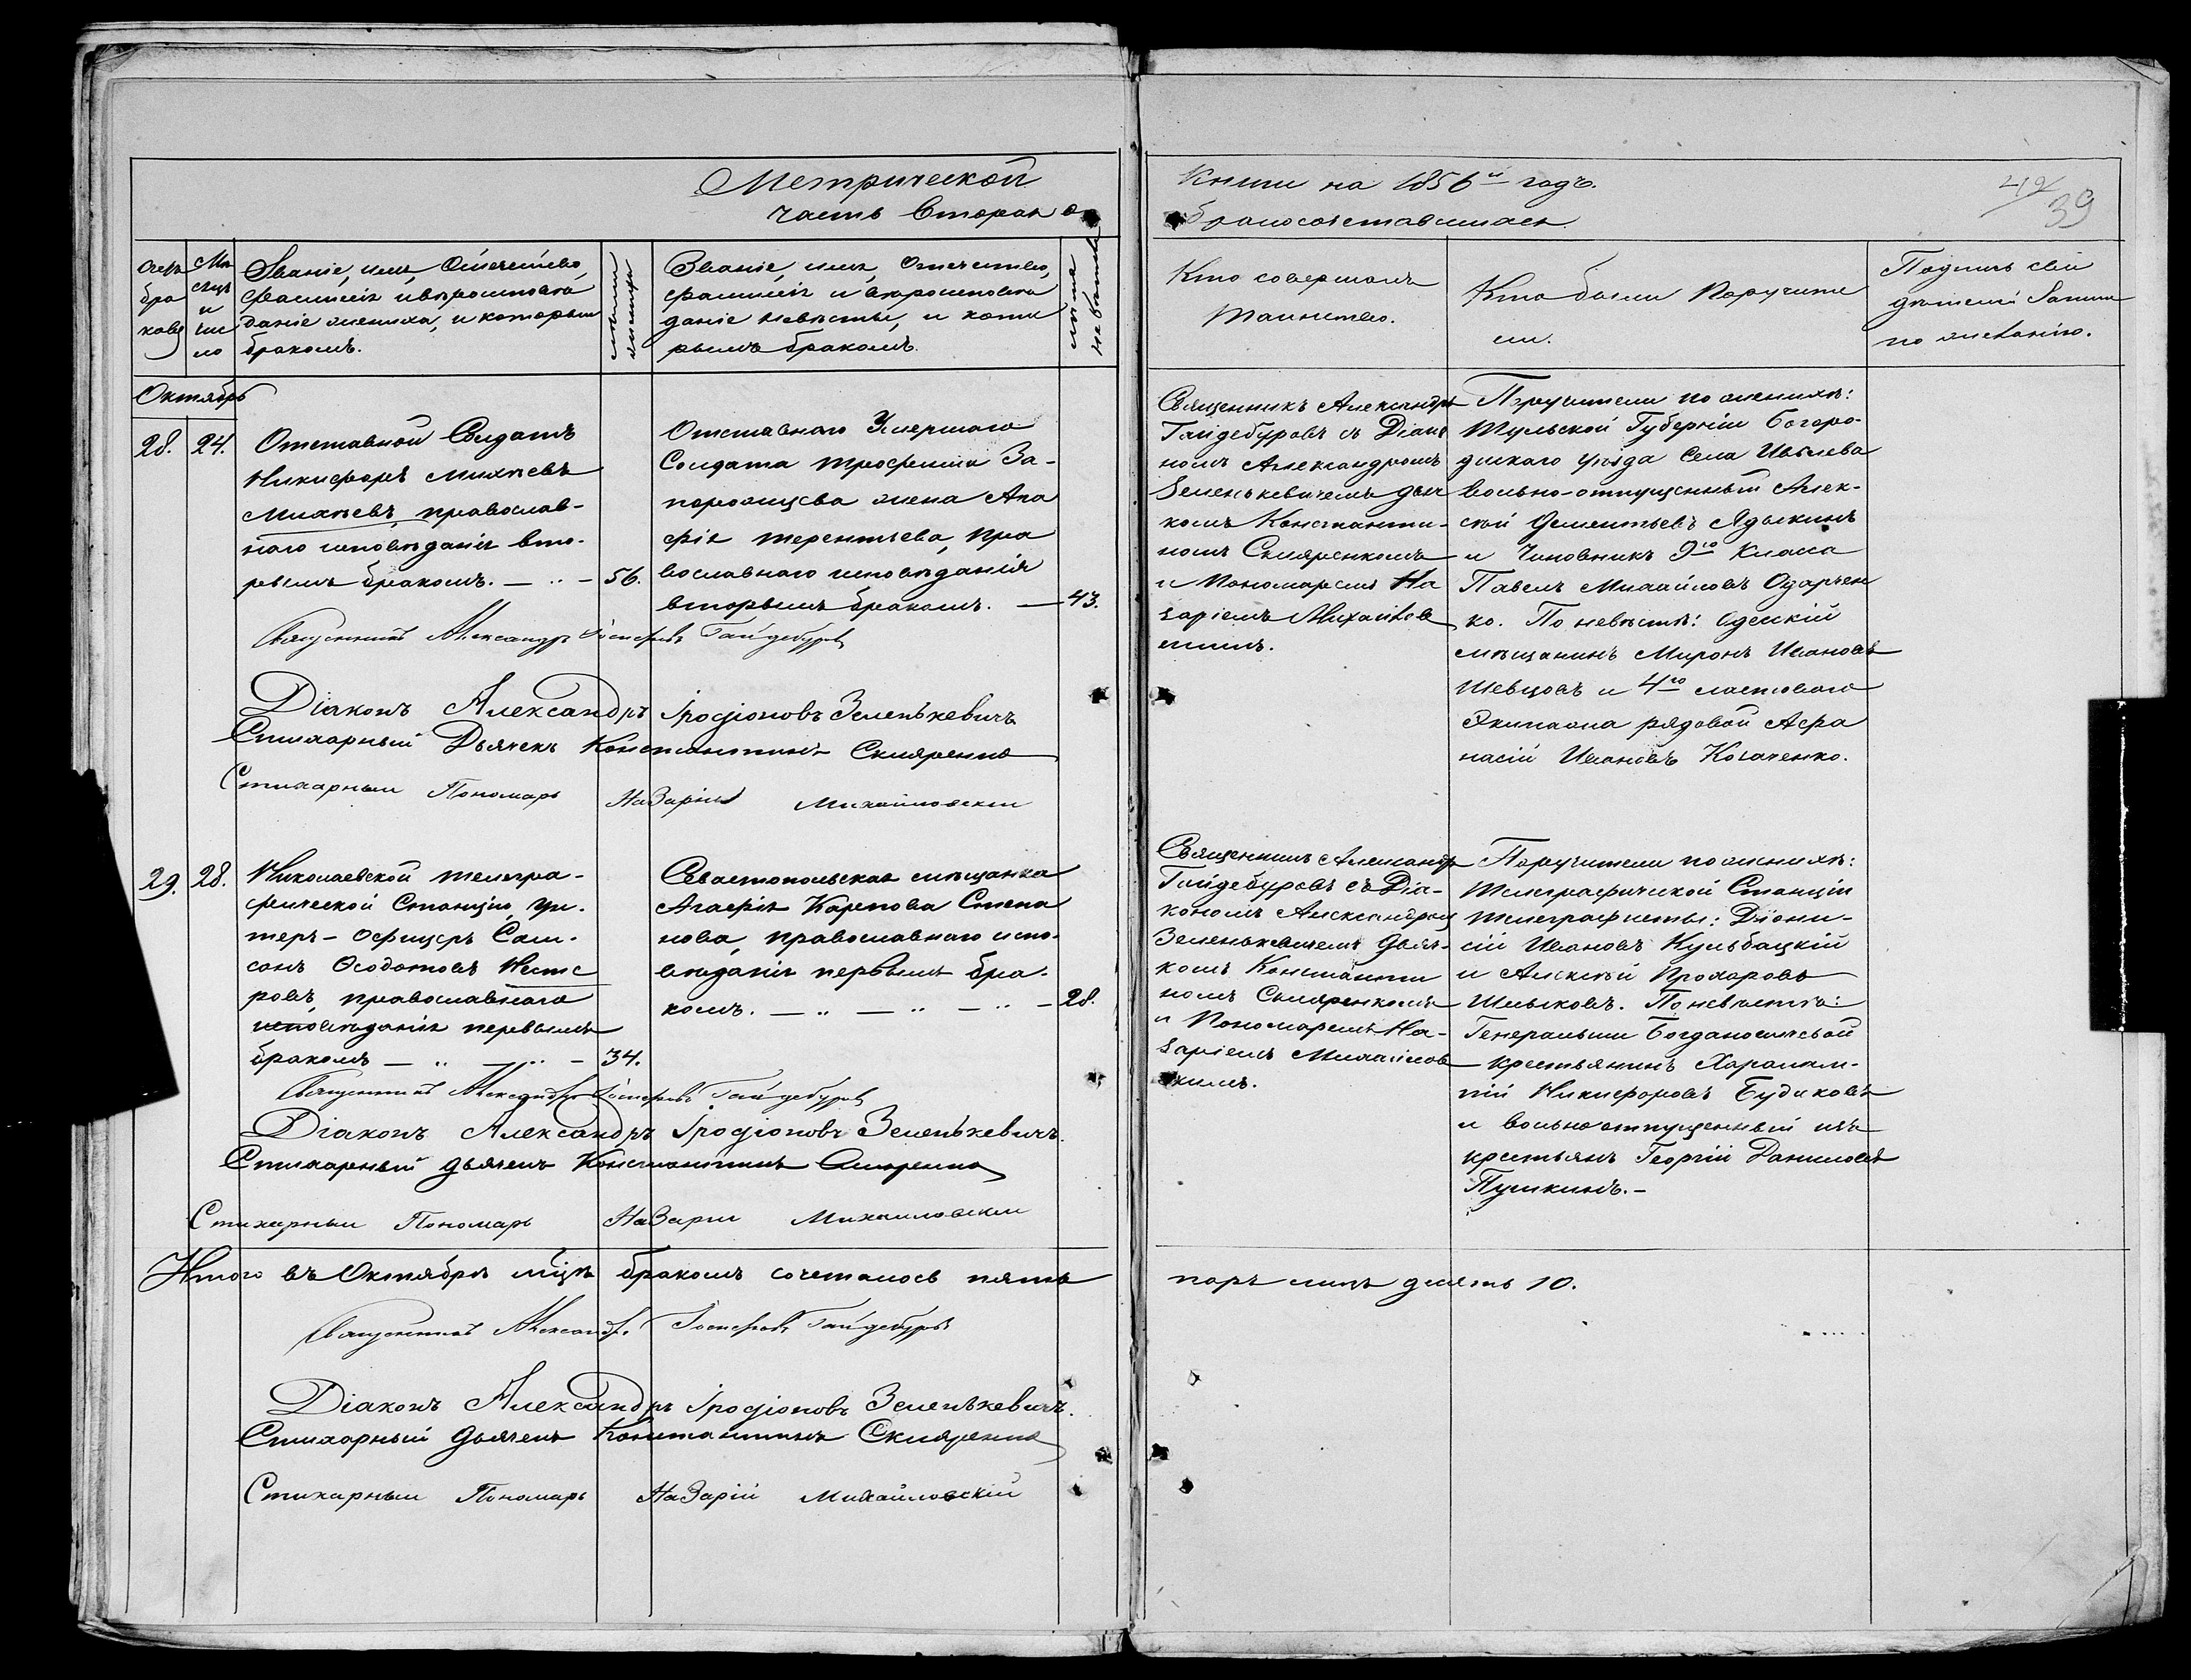 Метрической
часть вторая о
Книги на 1856й годъ.
бракосочетавшихся
42
39
Счетъ
бра
ковъ
Мѣ
сяцъ
и
чис
ло
Званіе, имя, Отечество,
фамилія и вѣроисповѣ
даніе жениха, и которым
бракомъ.
лѣта
жениха
Званіе, имя, отечество,
фамилія и вѣроисповѣ
даніе невѣсты, и кото
рымъ бракомъ.
лѣта
невѣсты
Кто совершалъ
таинство.
Кто были Поручите
ли.
Подпись сви
дѣтелей Записи
по желанію.
Октябрь
28.
24.
Отставной Солдатъ
Никифоръ Михѣевъ
Михѣевъ, православ-
наго исповѣданія вто-
рымъ бракомъ. — .. — 56.
Отставнаго Умершаго
Солдата Трофима За-
порожцева жена Ага
фія Терентьева, пра
вославнаго исповѣданія
вторымъ бракомъ. — 43.
Священникъ Александръ
Гайдебуровъ съ Діако
номъ Александромъ
Зеленькевичемъ дьяч
комъ Константи-
номъ Скляренкомъ
и Пономаремъ На
заріемъ Михайлов
скимъ.
Поручители по женихѣ:
Тульской Губерніи Богоро-
дицкаго уѣзда Села Ивлева
вольно-отпущенный Алек-
сѣй Дементьевъ Ядыкинъ
и Чиновникъ 9го класса
Павелъ Михайловъ Озарчен
ко. По невѣстѣ: Одескій
мѣщанинъ Миронъ Ивановъ
Шевцовъ и 4го ластоваго
Экипажа рядовой Афа
насій Ивановъ Косаченко.
Священникъ Александръ Іосифовъ Гайдебуровъ
Діаконъ Александръ Іродіоновъ Зеленькевичъ
Стихарный Дьячекъ Константинъ Скляренко
Стихарныи Пономарь Назарій Михайловскіи
29.
28.
Николаевской телегра-
фической Станціи, ун-
теръ-офицеръ Сам-
сонъ Ѳеодотовъ Несте
ровъ, православнаго
исповѣданія первымъ
бракомъ — .. — .. — 34.
Севастопольская мѣщанка
Агафія Карпова Степа
нова, православнаго испо-
вѣданія первымъ бра-
комъ. — .. — .. — .. — 28.
Священникъ Александръ
Гайдебуровъ съ Діа-
кономъ Александромъ
Зеленькевичемъ дьяч-
комъ Константи
номъ Скляренкомъ
и Пономаремъ На-
заріемъ Михайлов
скимъ.
Поручители по женихѣ:
Телеграфической Станціи
телеграфисты: Діони-
сій Ивановъ Кульбацкій
и Алексѣй Прохоровъ
Шлыковъ. По невѣстѣ:
Генеральши Богдановичевой
крестьянинъ Харлам-
пій Никифоровъ Будиковъ
и вольноотпущенный изъ
крестьянъ Георгій Даниловъ
Пушкинъ. —
Священникъ Александръ Іосифовъ Гайдебуровъ
Діаконъ Александръ Іродіоновъ Зеленькевичъ.
Стихарный дьячекъ Константинъ Скляренко
Стихарныи Пономарь Назарій Михаиловскіи
Итого въ Октябрѣ мѣцѣ бракомъ сочеталось пять
паръ лицъ десять 10.
Священникъ Александръ Іосифовъ Гайдебуровъ
Діаконъ Александръ Іродіоновъ Зеленькевичъ.
Стихарный дьячекъ Константинъ Скляренко
Стихарныи Пономарь Назарій Михайловскій